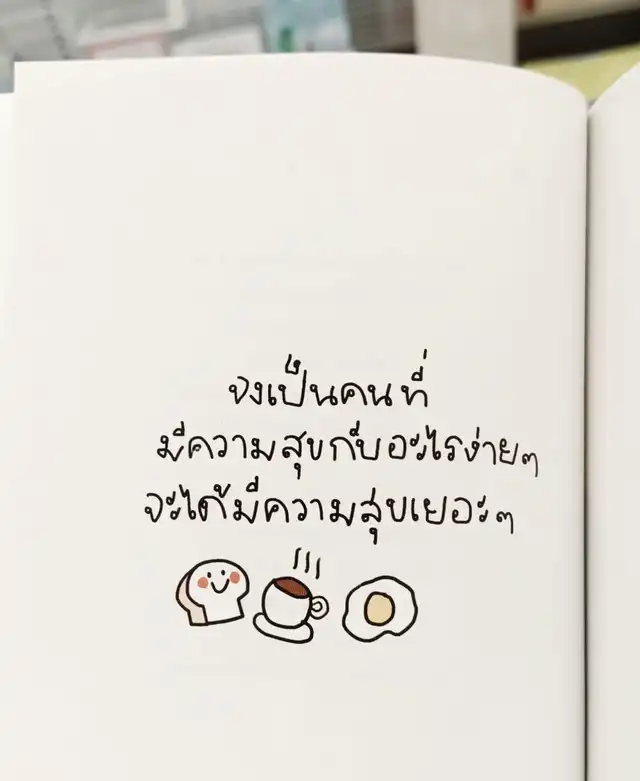 จงเป็นคนที่
มีความสุขกับอะไรง่ายๆ
จะได้มีความสุขเยอะๆ